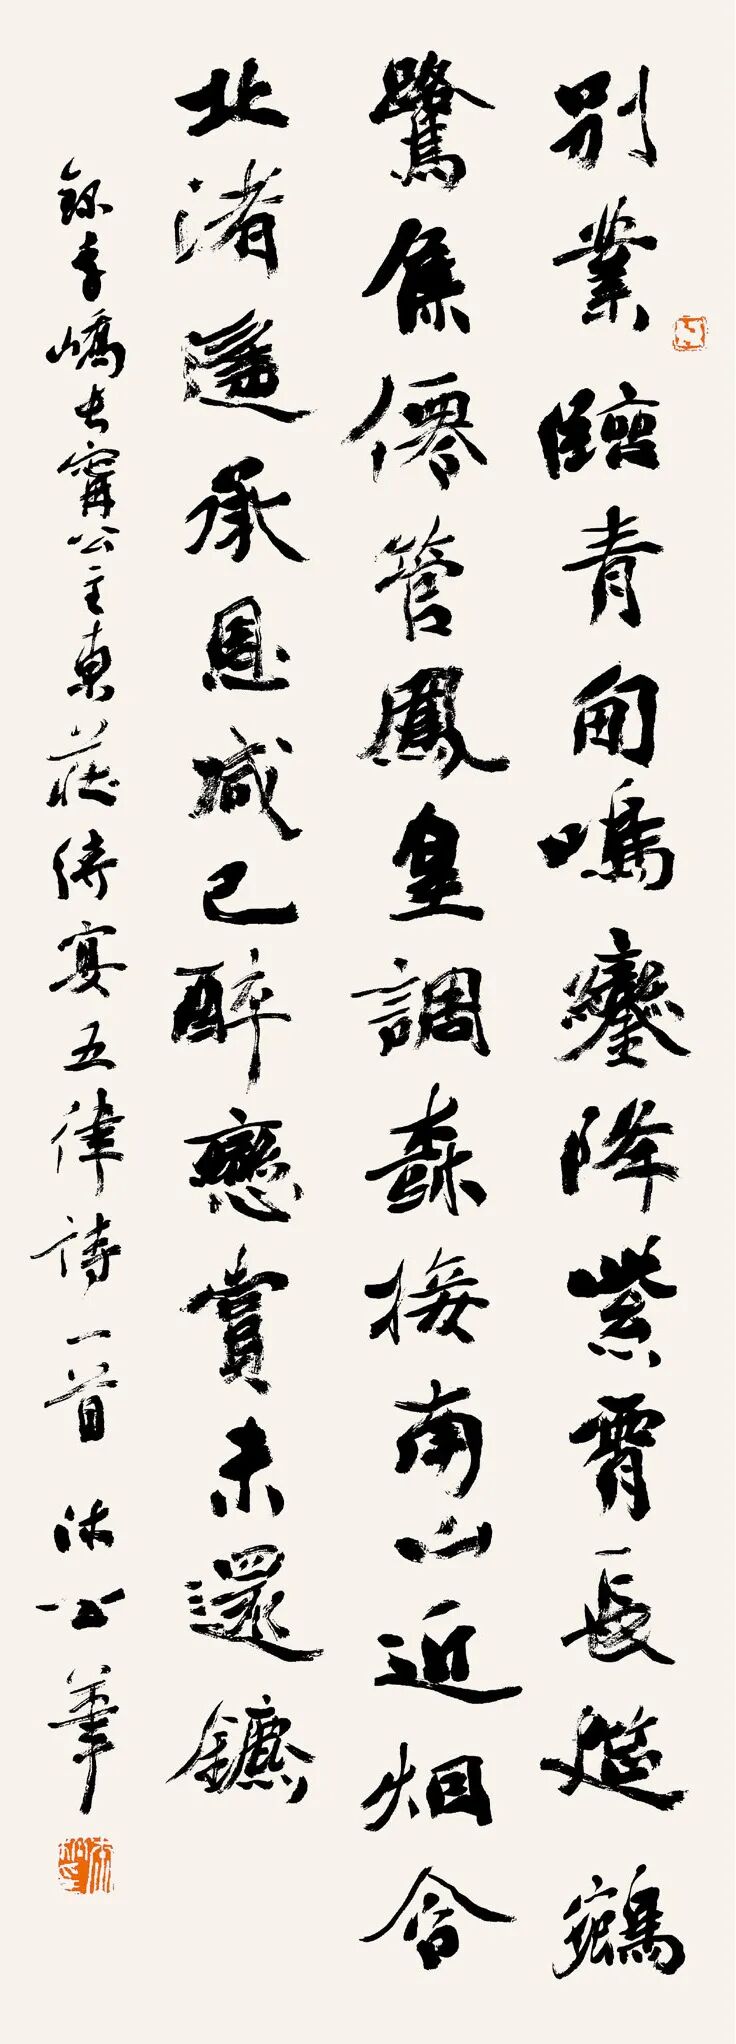 別業臨青甸鳴鑾降紫霄長筵鵷
鷺集僊管鳳皇調樹接南山近烟含
北渚遥承恩咸已醉戀賞未還鑣
錄李嶠長甯公主東莊侍宴五律詩一首 沐公筆